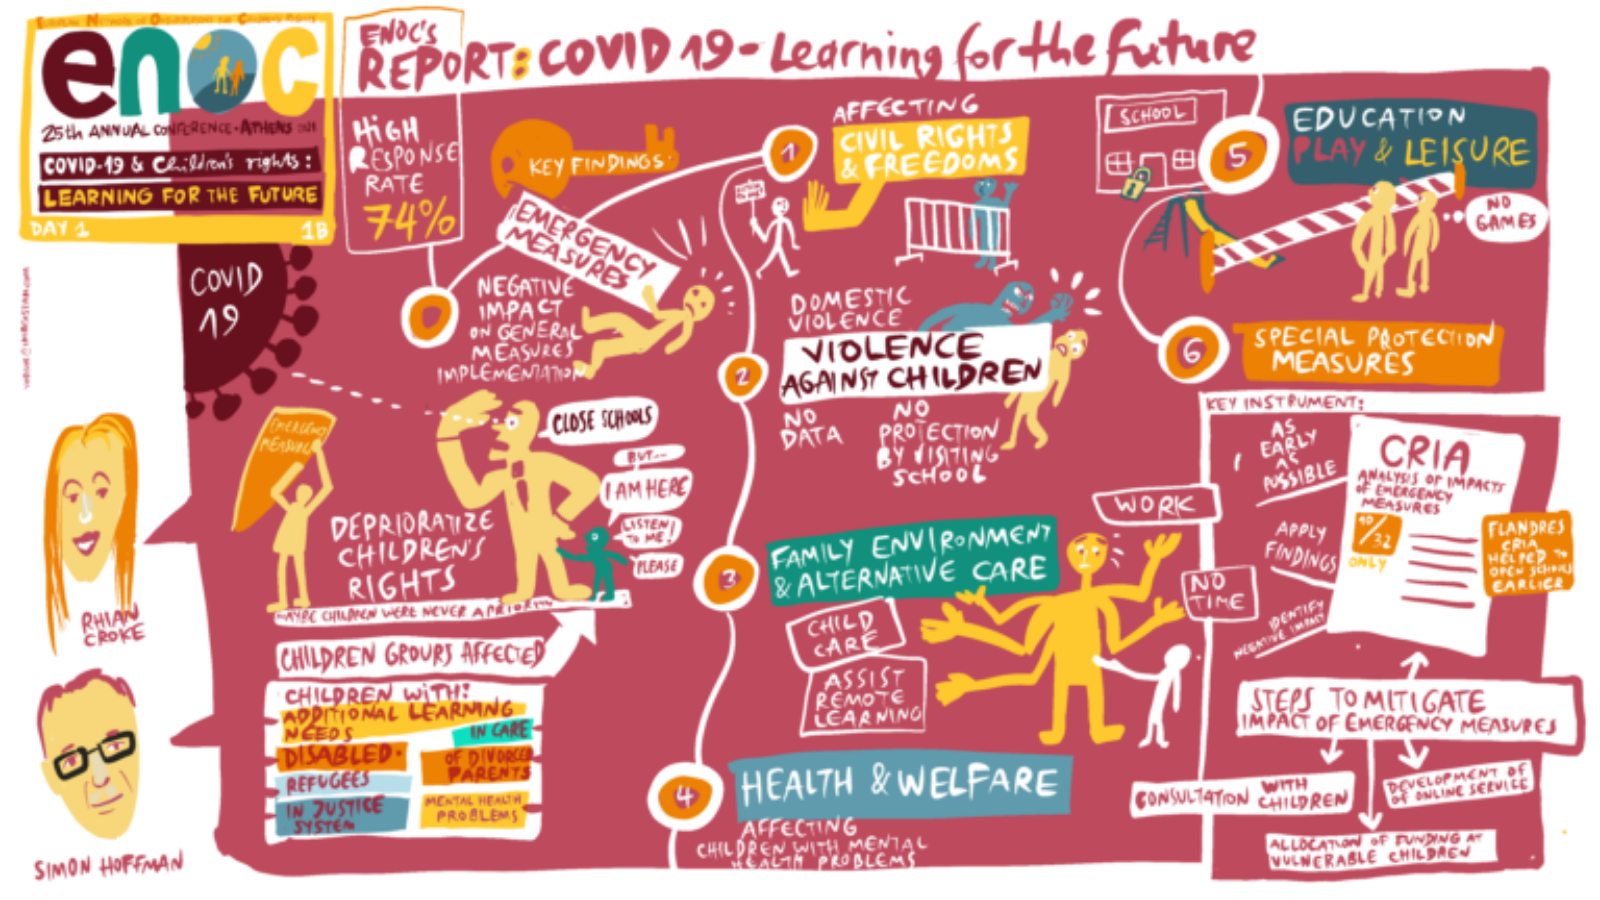 European Network of Ombudspersons for Children's Rights
enoc
25th ANNUAL CONFERENCE • ATHENS
COVID-19 & Children's rights:
LEARNING FOR THE FUTURE
DAY 1
1B
ENOC'S
REPORT: COVID 19 - Learning for the Future
HIGH
RESPONSE
RATE
74%
COVID
19
KEY FINDINGS:
EMERGENCY
MEASURES
NEGATIVE
IMPACT
ON GENERAL
MEASURES
IMPLEMENTATION
EMERGENCY
MEASURES
CLOSE SCHOOLS
BUT...
I AM HERE
LISTEN!
TO ME!
PLEASE
DEPRIORATIZE
CHILDREN'S
RIGHTS
MAYBE CHILDREN WERE NEVER A PRIORITY
CHILDREN GROUPS AFFECTED
CHILDREN WITH:
ADDITIONAL LEARNING
NEEDS
IN CARE
DISABLED
OF DIVORCED
PARENTS
REFUGEES
IN JUSTICE
SYSTEM
MENTAL HEALTH
PROBLEMS
RHIAN
CROKE
SIMON HOFFMAN
1
AFFECTING
CIVIL RIGHTS
& FREEDOMS
2
DOMESTIC
VIOLENCE
VIOLENCE
AGAINST CHILDREN
NO
DATA
NO
PROTECTION
BY VISITING
SCHOOL
3
FAMILY ENVIRONMENT
& ALTERNATIVE CARE
WORK
NO
TIME
CHILD
CARE
ASSIST
REMOTE
LEARNING
4
HEALTH & WELFARE
AFFECTING
CHILDREN WITH MENTAL
HEALTH PROBLEMS
SCHOOL
5
EDUCATION
PLAY & LEISURE
NO
GAMES
6
SPECIAL PROTECTION
MEASURES
KEY INSTRUMENT:
AS
EARLY
AS
POSSIBLE
APPLY
FINDINGS
IDENTIFY
NEGATIVE IMPACT
CRIA
ANALYSIS OF IMPACTS
OF EMERGENCY
MEASURES
10/32
ONLY
FLANDRES
CRIA
HELPED TO
OPEN SCHOOLS
EARLIER
STEPS TO MITIGATE
IMPACT OF EMERGENCY MEASURES
CONSULTATION WITH
CHILDREN
DEVELOPMENT OF
OF ONLINE SERVICE
ALLOCATION OF FUNDING AT
VULNERABLE CHILDREN